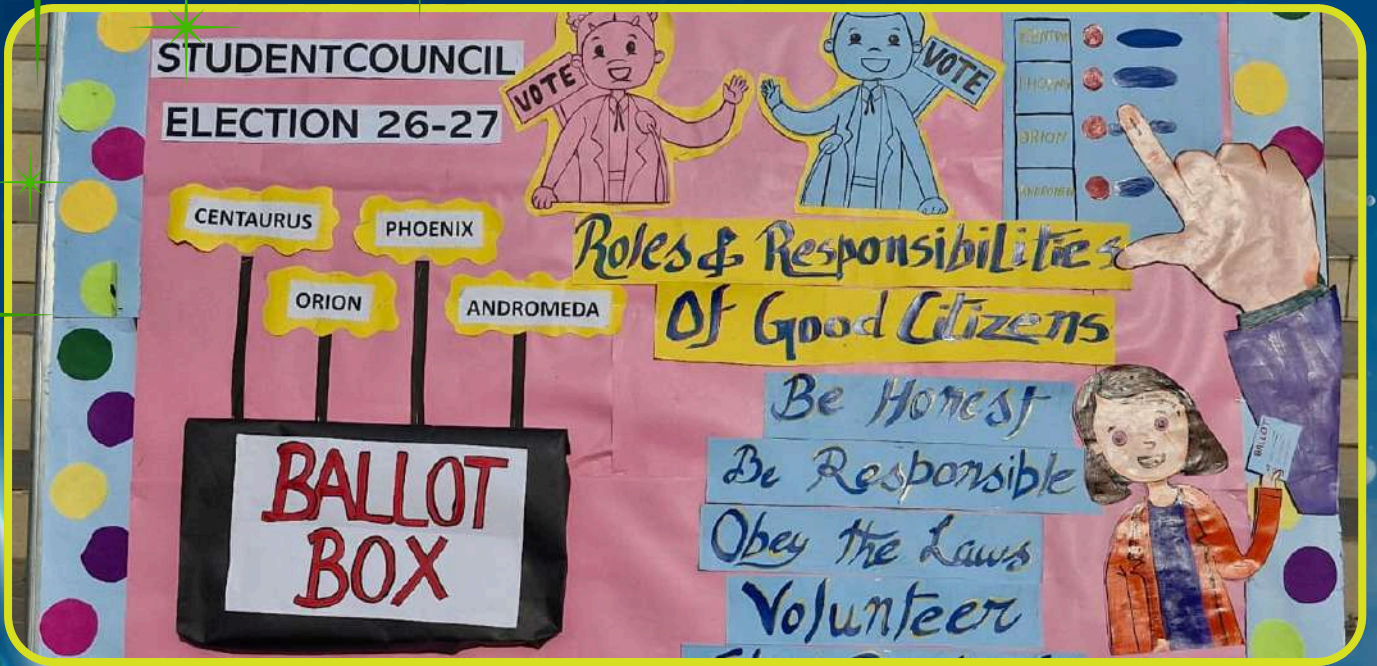 STUDENTCOUNCIL
ELECTION 26-27
VOTE
VOTE
ORION
CENTAURUS
PHOENIX
ORION
ANDROMEDA
Roles & Responsibilities
Of Good Citizens
Be Honest
Be Responsible
Obey the Laws
Volunteer
BALLOT
BALLOT
BOX